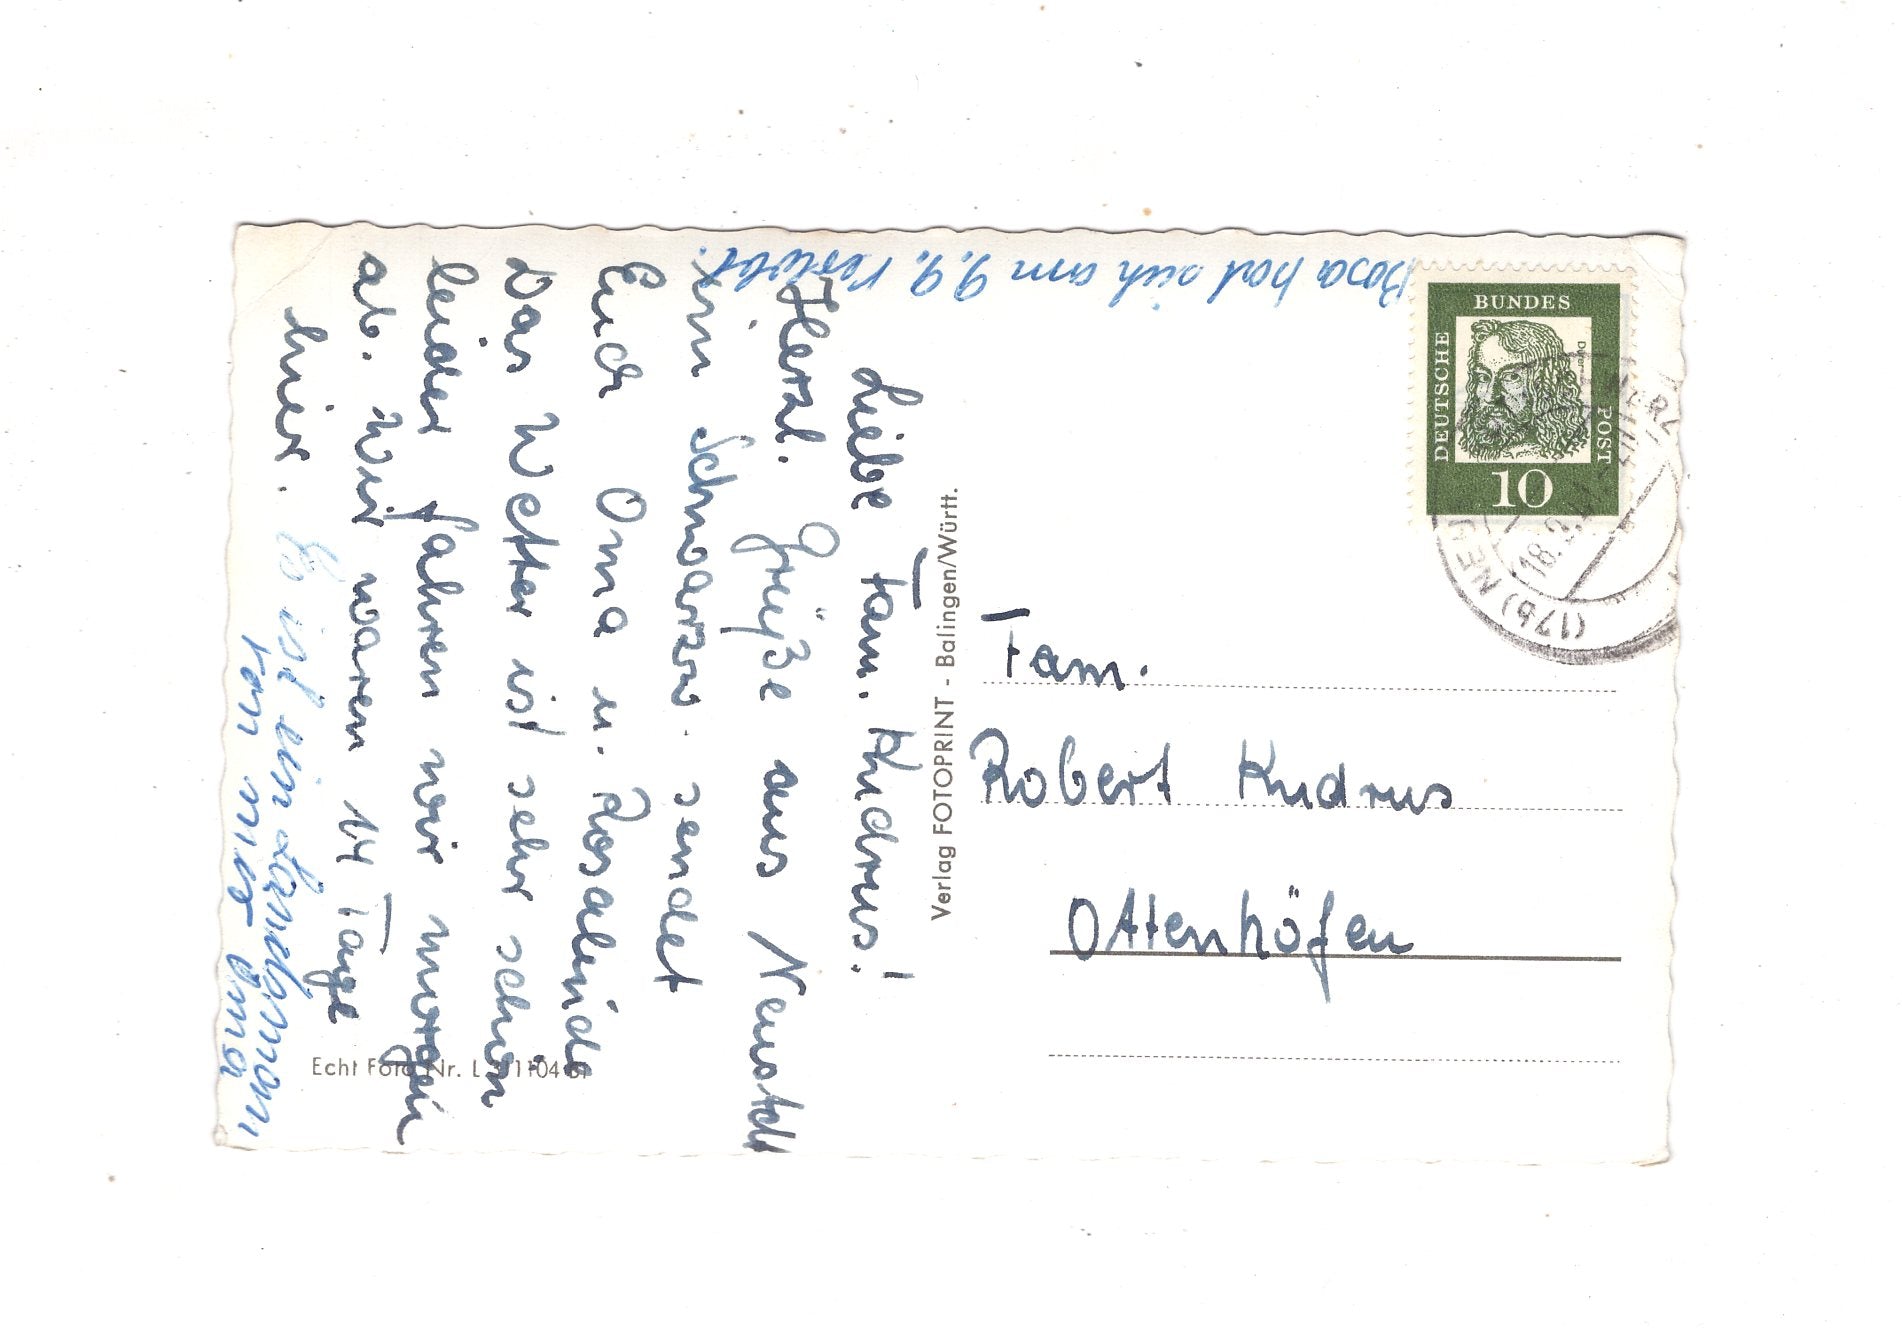 Liebe Fam. Kudrus!
Herzl. Grüße aus Neustdt
im Schwarzw. sendet
Euch Oma u. Rosalinde
Das Wetter ist sehr schön
leider fahren wir morgen
ab. Wir waren 14 Tage
hier. Es ist ein
von
Oma
Rosa hat sich am 9.9. verlobt.
Verlag FOTOPRINT - Balingen/Württ.
Echt Foto Nr. L
DEUTSCHE
BUNDES
POST
10
(17b) NEU
18.9.
Fam.
Robert Kudrus
Ottenhöfen